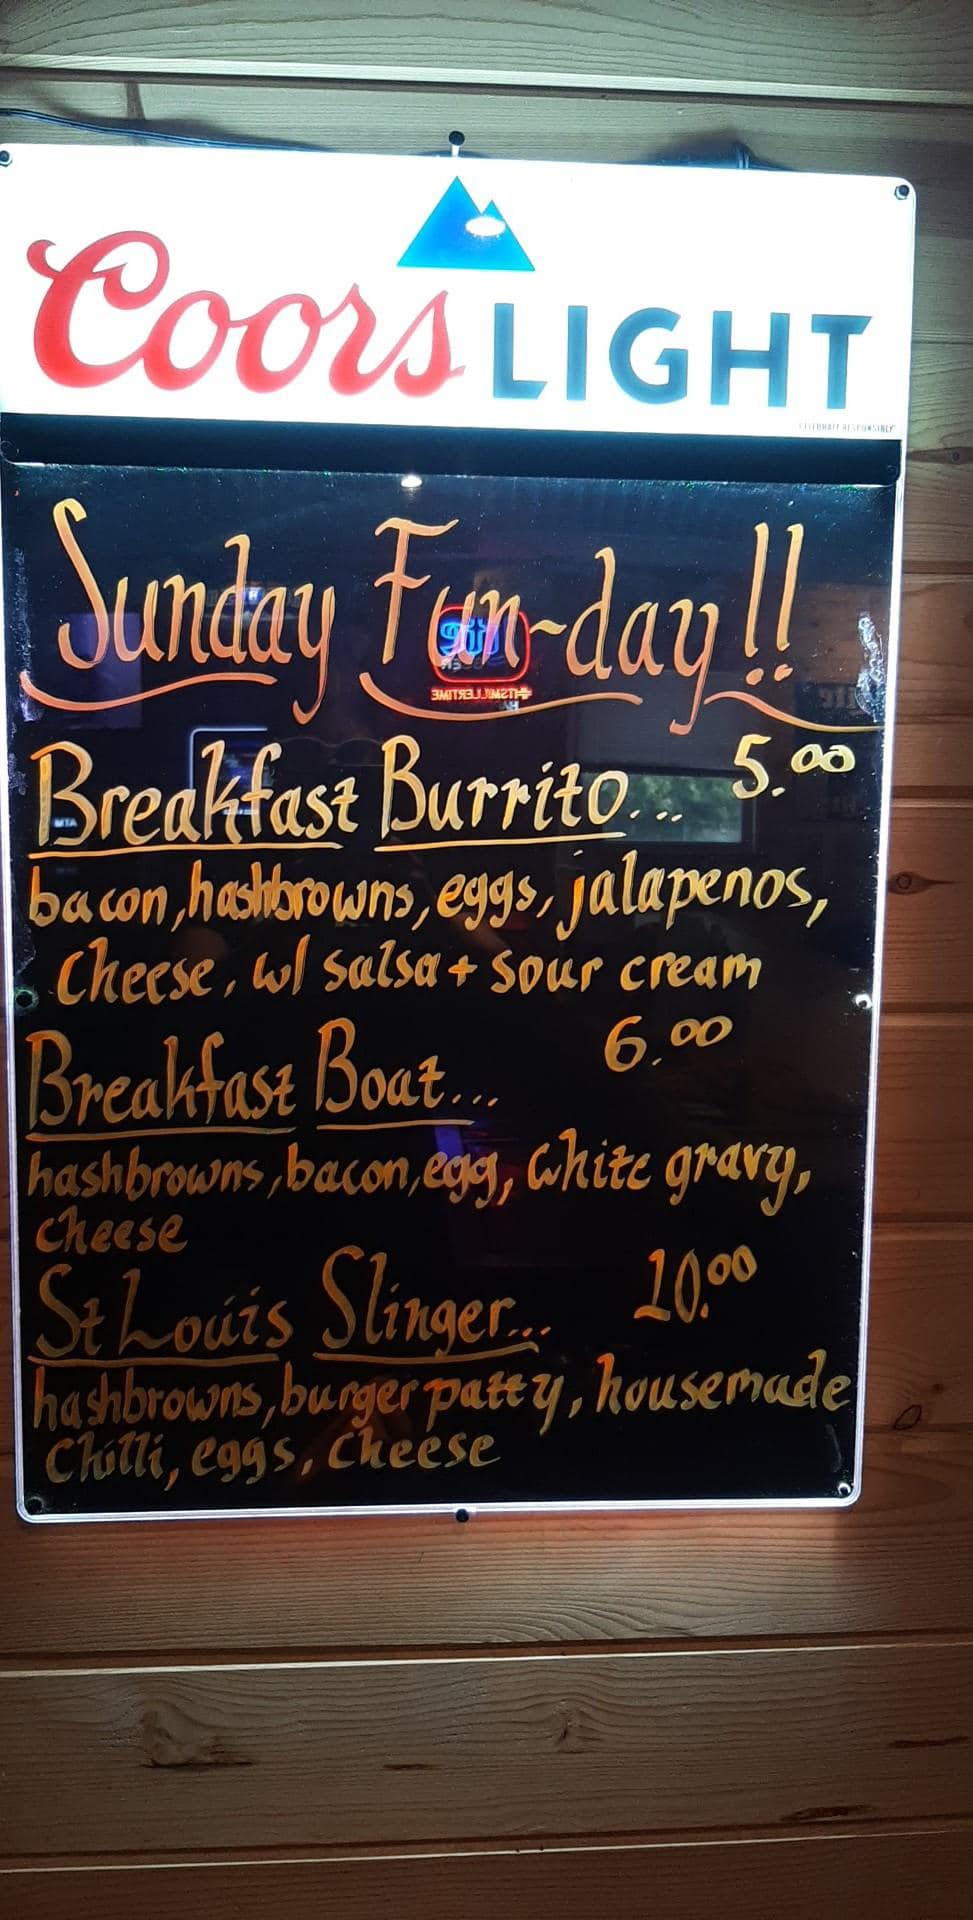 Coors LIGHT
CELEBRATE RESPONSIBLY
Sunday Fun-day!!
Breakfast Burrito... 5.00
bacon, hashbrowns, eggs, jalapenos,
cheese, w/ salsa + sour cream
Breakfast Boat... 6.00
hashbrowns, bacon, egg, white gravy,
cheese
St Louis Slinger... 10.00
hashbrowns, burger patty, housemade
Chilli, eggs, cheese
#ITSMILLERTIME